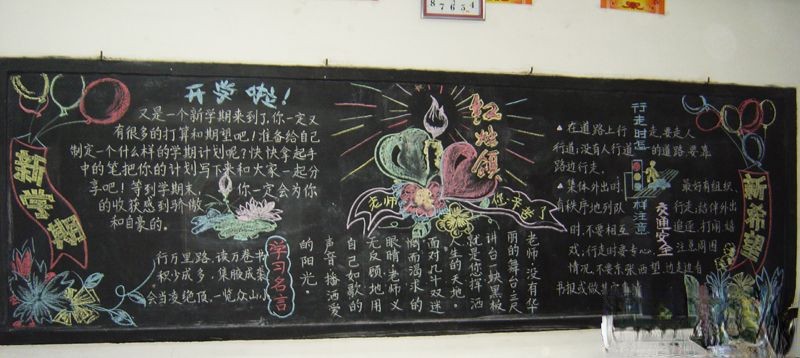 8 7 6 5 4
新学期
开学啦！
又是一个新学期来到了,你一定又
有很多的打算和期望吧！准备给自己
制定一个什么样的学期计划呢？快快拿起手
中的笔把你的计划写下来和大家一起分
享吧！等到学期末，你一定会为你
的收获感到骄傲
和自豪的。
学习名言
行万里路，读万卷书
积少成多，集腋成裘
会当凌绝顶，一览众山小
红烛颂
老师
你辛苦了
老师，没有华
丽的舞台，三尺
讲台一块黑板
就是您挥洒
人生的天地。
面对几十双迷
惘而渴求的
眼睛，老师义
无反顾地用
自己如歌的
声音播洒爱
的阳光。
行走时怎
样注意
交通安全
在道路上行走，要走人
行道；没有人行道的道路，要靠
路边行走。
集体外出时，最好有组织、
有秩序地列队行走；结伴外出
时，不要相互追逐、打闹、嬉
戏；行走时要专心，注意周围
情况，不要东张西望、边走边看
书报或做其它
新希望